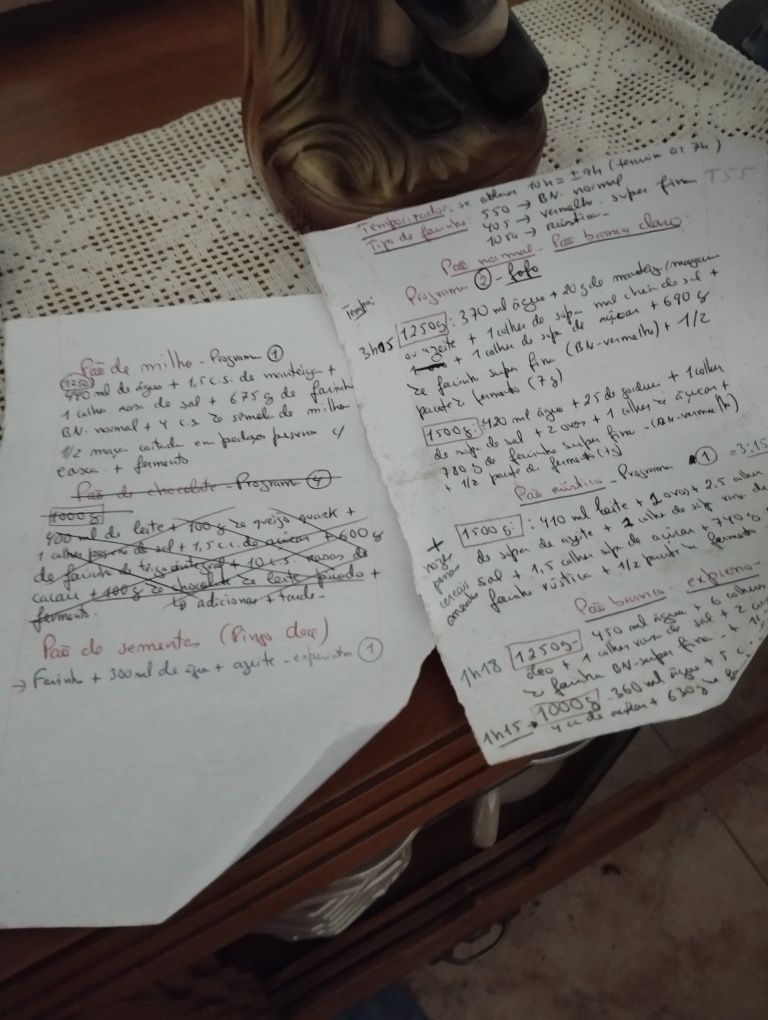 Pão de milho - Programa 1
1250
440 ml de água + 1,5 c.s. de manteiga +
1 colher rasa de sal + 675 g de farinha
BN. normal + 4 c.s. de sêmola de milho
1/2 maçã cortada em pedaços pequenos c/
casca + fermento
Pão de chocolate - Programa 4
1000 g
400 ml de leite + 100 g de queijo quark +
1 colher pequena de sal + 1,5 c.c. de açúcar + 600 g
de farinha de trigo integral + 10 c.s. rasas de
cacau + 100 g de chocolate de leite picado +
fermento. adicionar + tarde
Pão de sementes (Pingo doce)
→ Farinha + 300 ml de água + azeite - 1
Temporizador: se 10h = ± 9h (termina às 7h)
Tipo de farinha: 550 → BN. normal
405 → vermelho - super fina T55
1050 → rústica
Pão normal - Pão branco claro
Tempo: Programa 2 - fofo
3h15 1250g: 370 ml água + 20 g de manteiga/margarina
ou azeite + 1 colher de sopa mal cheia de sal +
+ 1 colher de sopa de açúcar + 690 g
de farinha super fina (BN-vermelho) + 1/2
pacote de fermento (7g)
1500g: 420 ml água + 25 de gordura + 1 colher
de sopa de sal + 2 ovos + 1 colher de açúcar +
780 g de farinha super fina - (BN-vermelho)
+ 1/2 pacote de fermento (7g)
Pão rústico - Programa 1 = 3:15
1500g: 410 ml leite + 2 ovos + 2,5 colher
de sopa de azeite + 1 colher de sopa rasa de
sal + 1,5 colher sopa de açúcar + 740 g
farinha rústica + 1/2 pacote de fermento
+
nozes
Pão branco - expresso
1h18 1250g - 450 ml água + 6 colheres
óleo + 1 colher rasa de sal + 2
de farinha BN-super fina -
1h15 → 1000g - 360 ml água + 5 c.
4 cc de açúcar + 630 g de